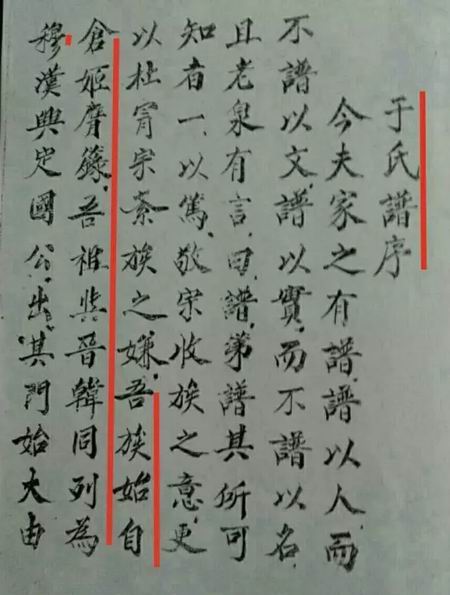 于氏譜序
今夫家之有譜譜以人而
不譜以文譜以實而不譜以名
且老泉有言曰譜苐譜其所可
知者一以篤敬宗收族之意更
以杜冐宗紊族之嫌吾族始自
倉姬膺籙吾祖與晉韓同列為
穆漢興定國公出其門始大由